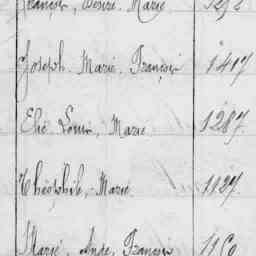 François, Désiré, Marie 1292
Joseph Marie François 1417
Elie Louis, Marie 1287
Théophile, Marie 1127
Marie, Ange, François